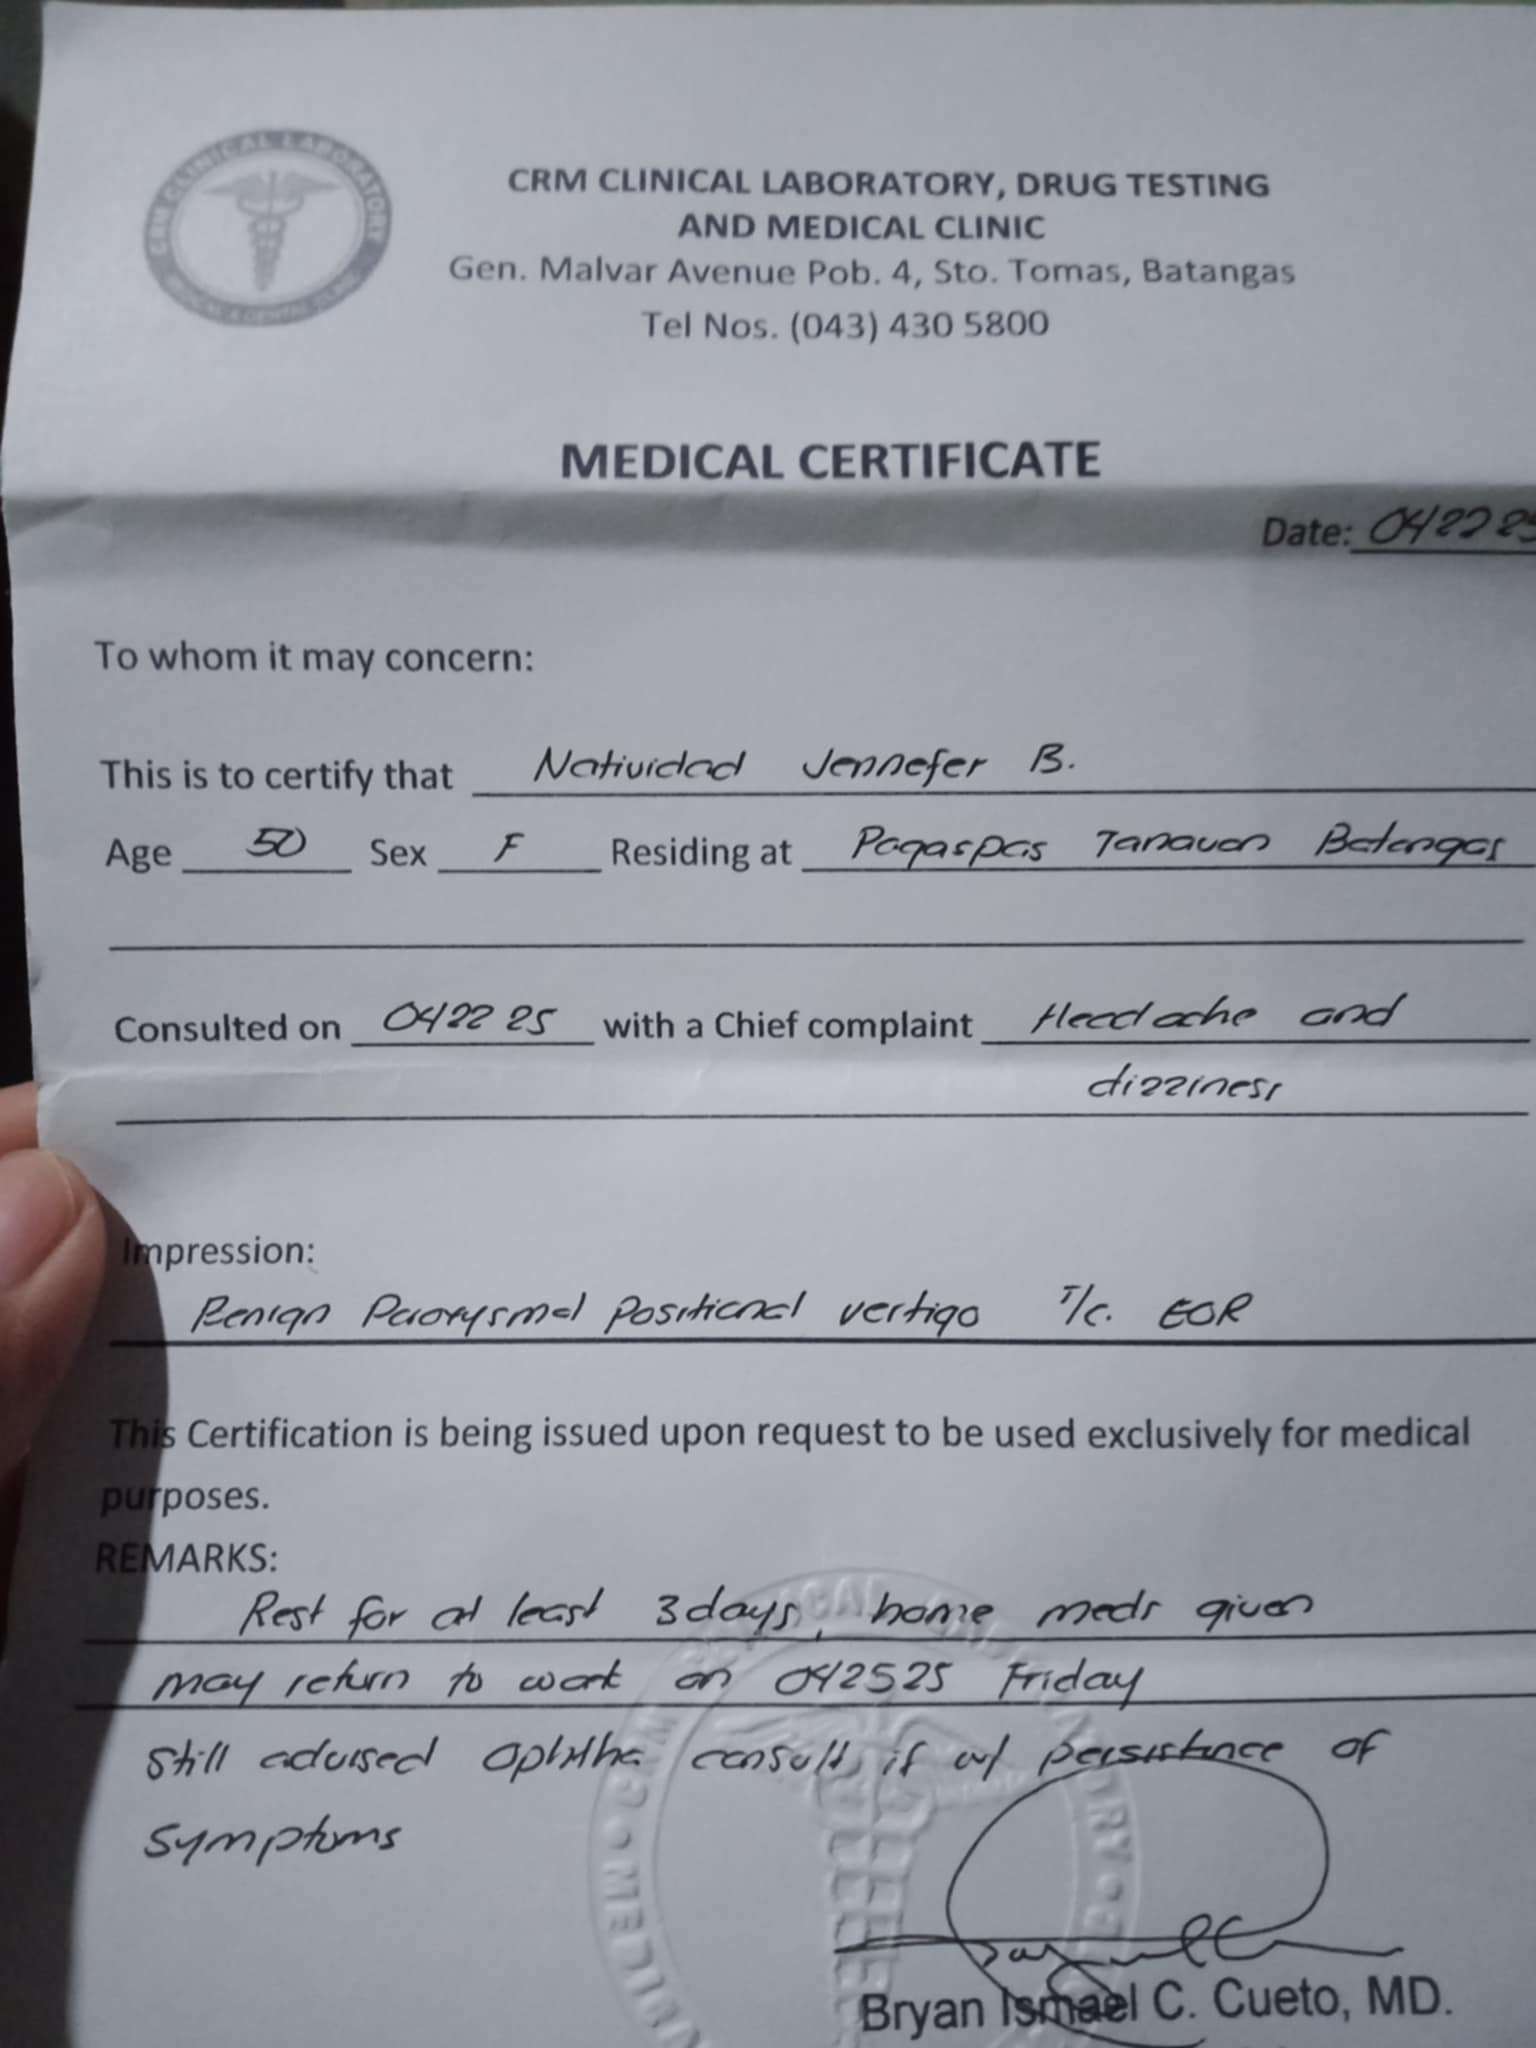 CRM CLINICAL LABORATORY
CRM CLINICAL LABORATORY, DRUG TESTING
AND MEDICAL CLINIC
Gen. Malvar Avenue Pob. 4, Sto. Tomas, Batangas
Tel Nos. (043) 430 5800
MEDICAL CERTIFICATE
Date: 042225
To whom it may concern:
This is to certify that Natividad Jennefer B.
Age 50 Sex F Residing at Pagaspas Tanauan Batangas
Consulted on 042225 with a Chief complaint Headache and
dizziness
Impression:
Benign Paroxysmal positional vertigo T/c. EOR
This Certification is being issued upon request to be used exclusively for medical
purposes.
REMARKS:
Rest for at least 3days, home meds given
may return to work on 042525 Friday
still advised Ophtha consult, if w/ persistence of
symptoms
Bryan Ismael C. Cueto, MD.